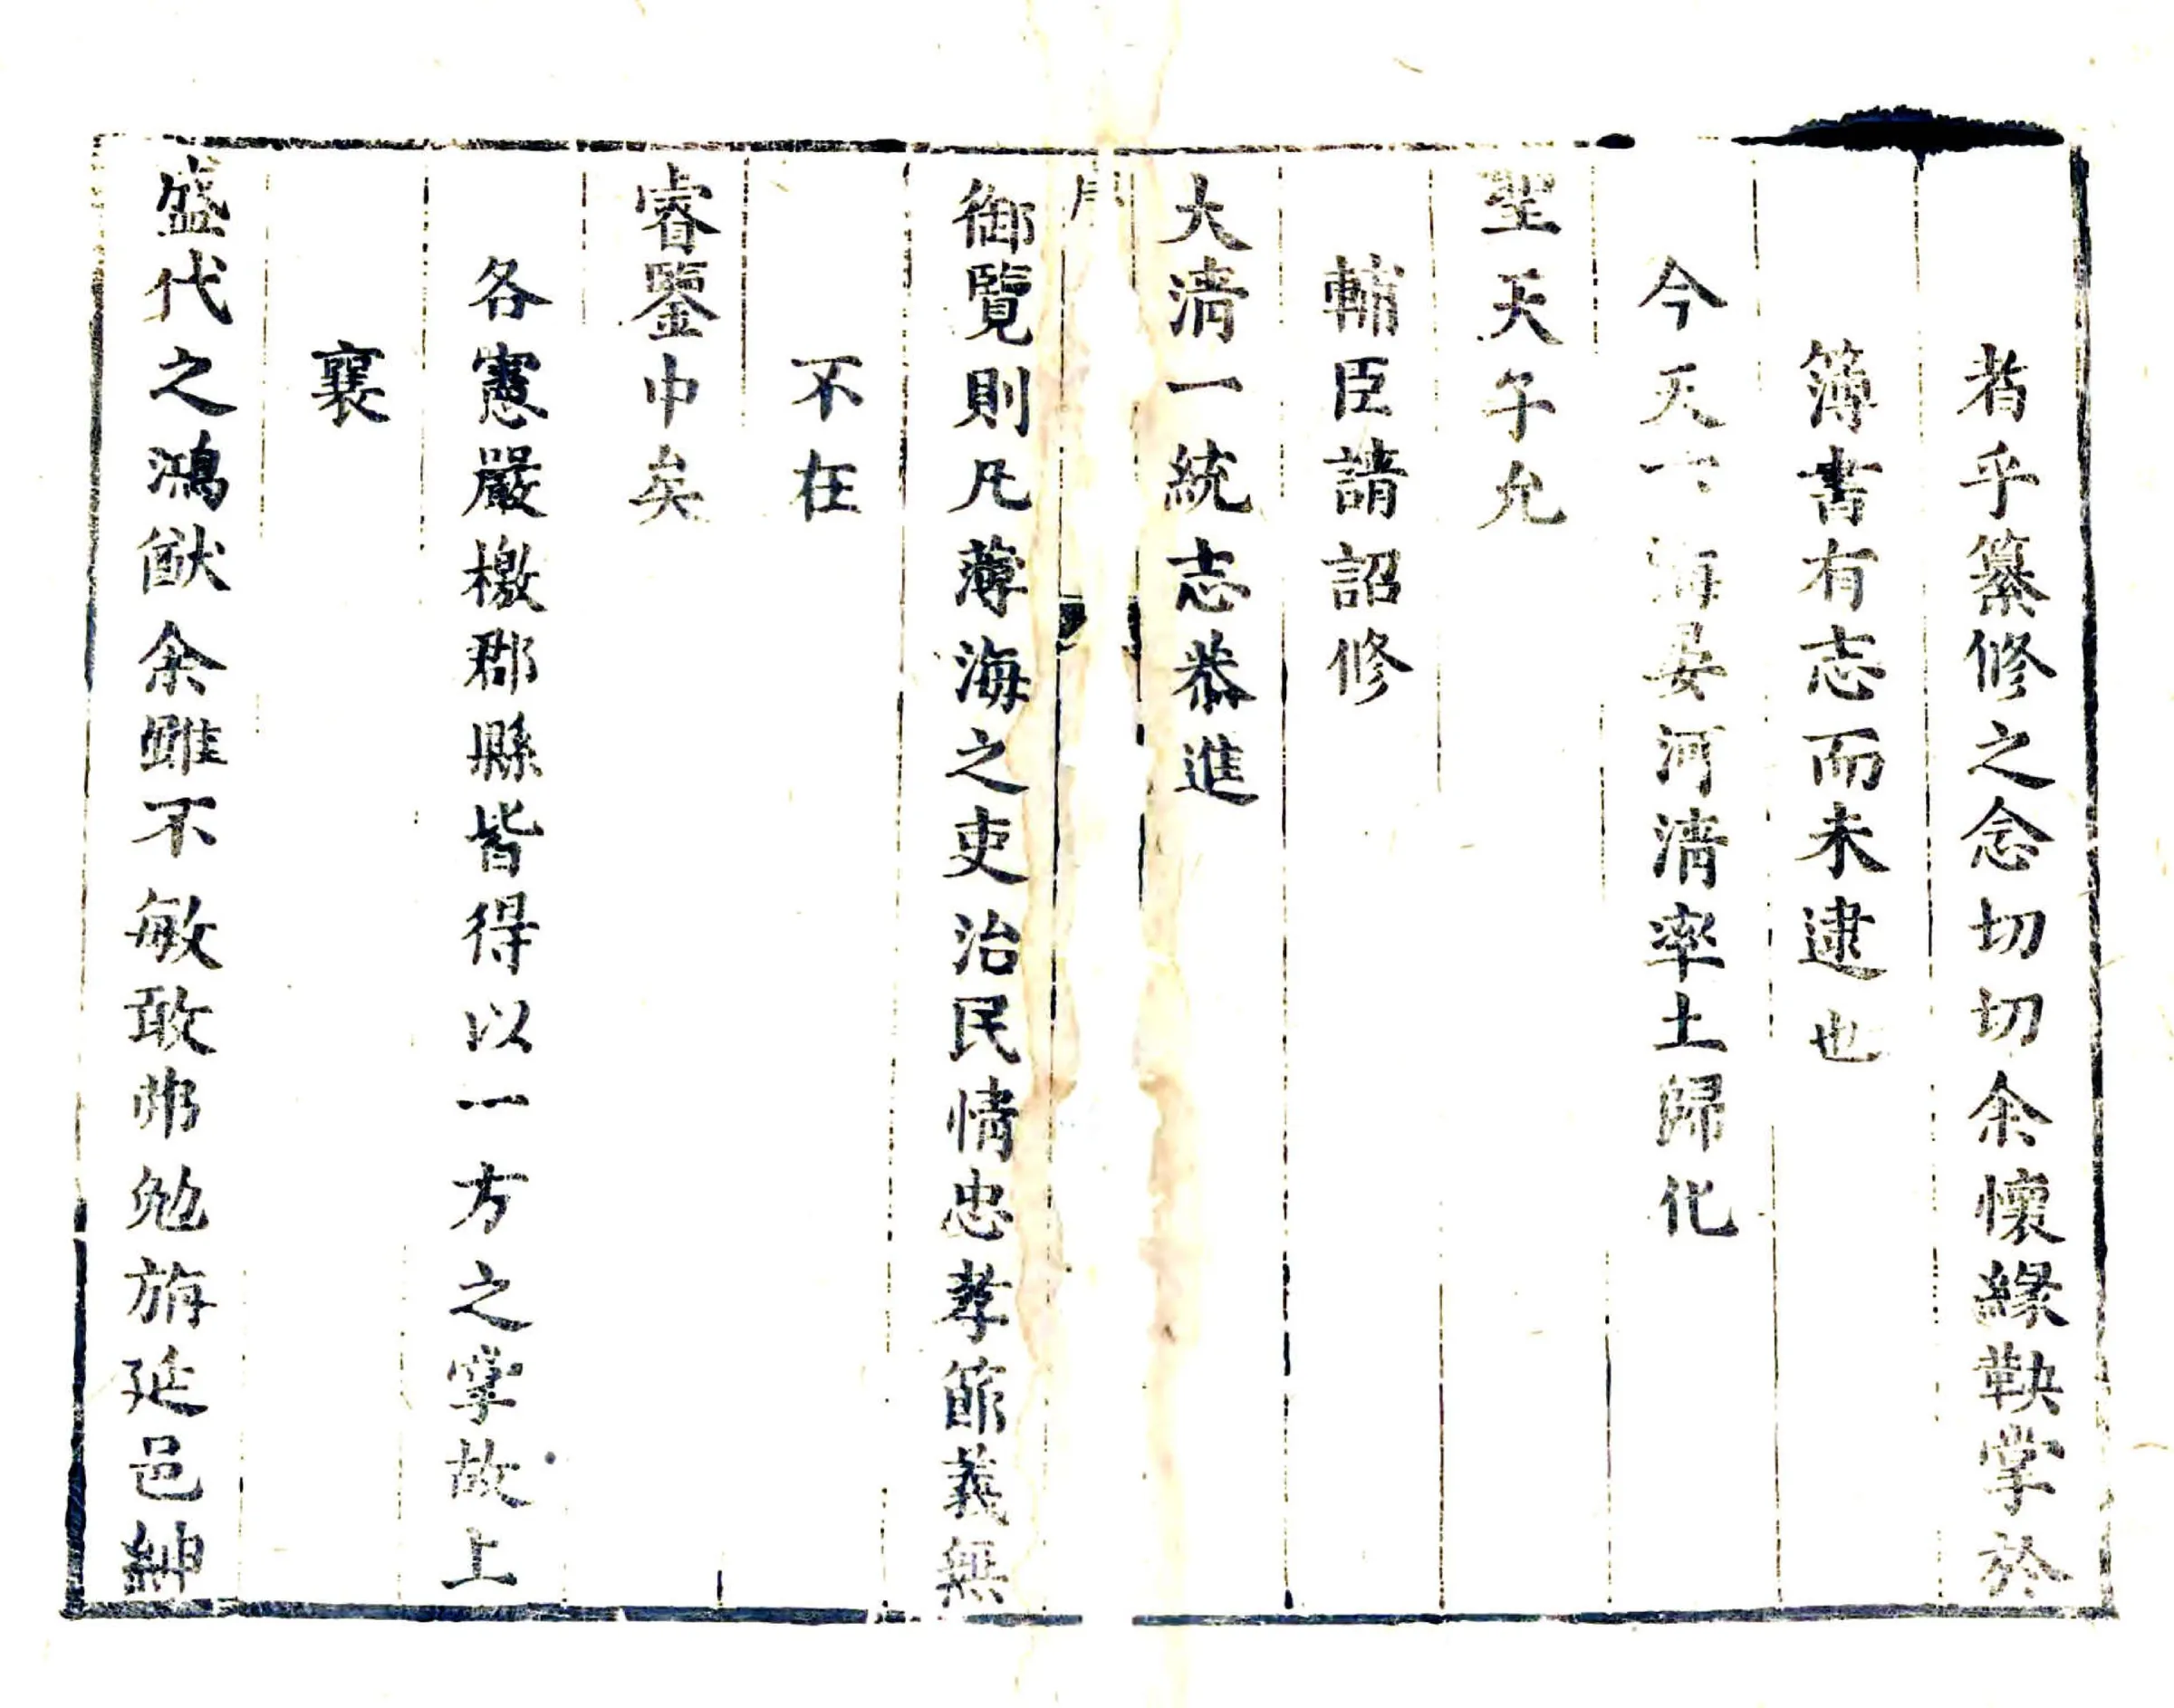 者乎纂修之念切切余懷緣鞅掌於
簿書有志而未逮也
今天下海晏河清率土歸化
聖天子允
輔臣請詔修
大清一統志恭進
御覽則凡薄海之吏治民情忠孝節義無
不在
睿鑒中矣
各憲嚴檄郡縣皆得以一方之掌故上
襄
盛代之鴻猷余雖不敏敢弗勉旃延邑紳